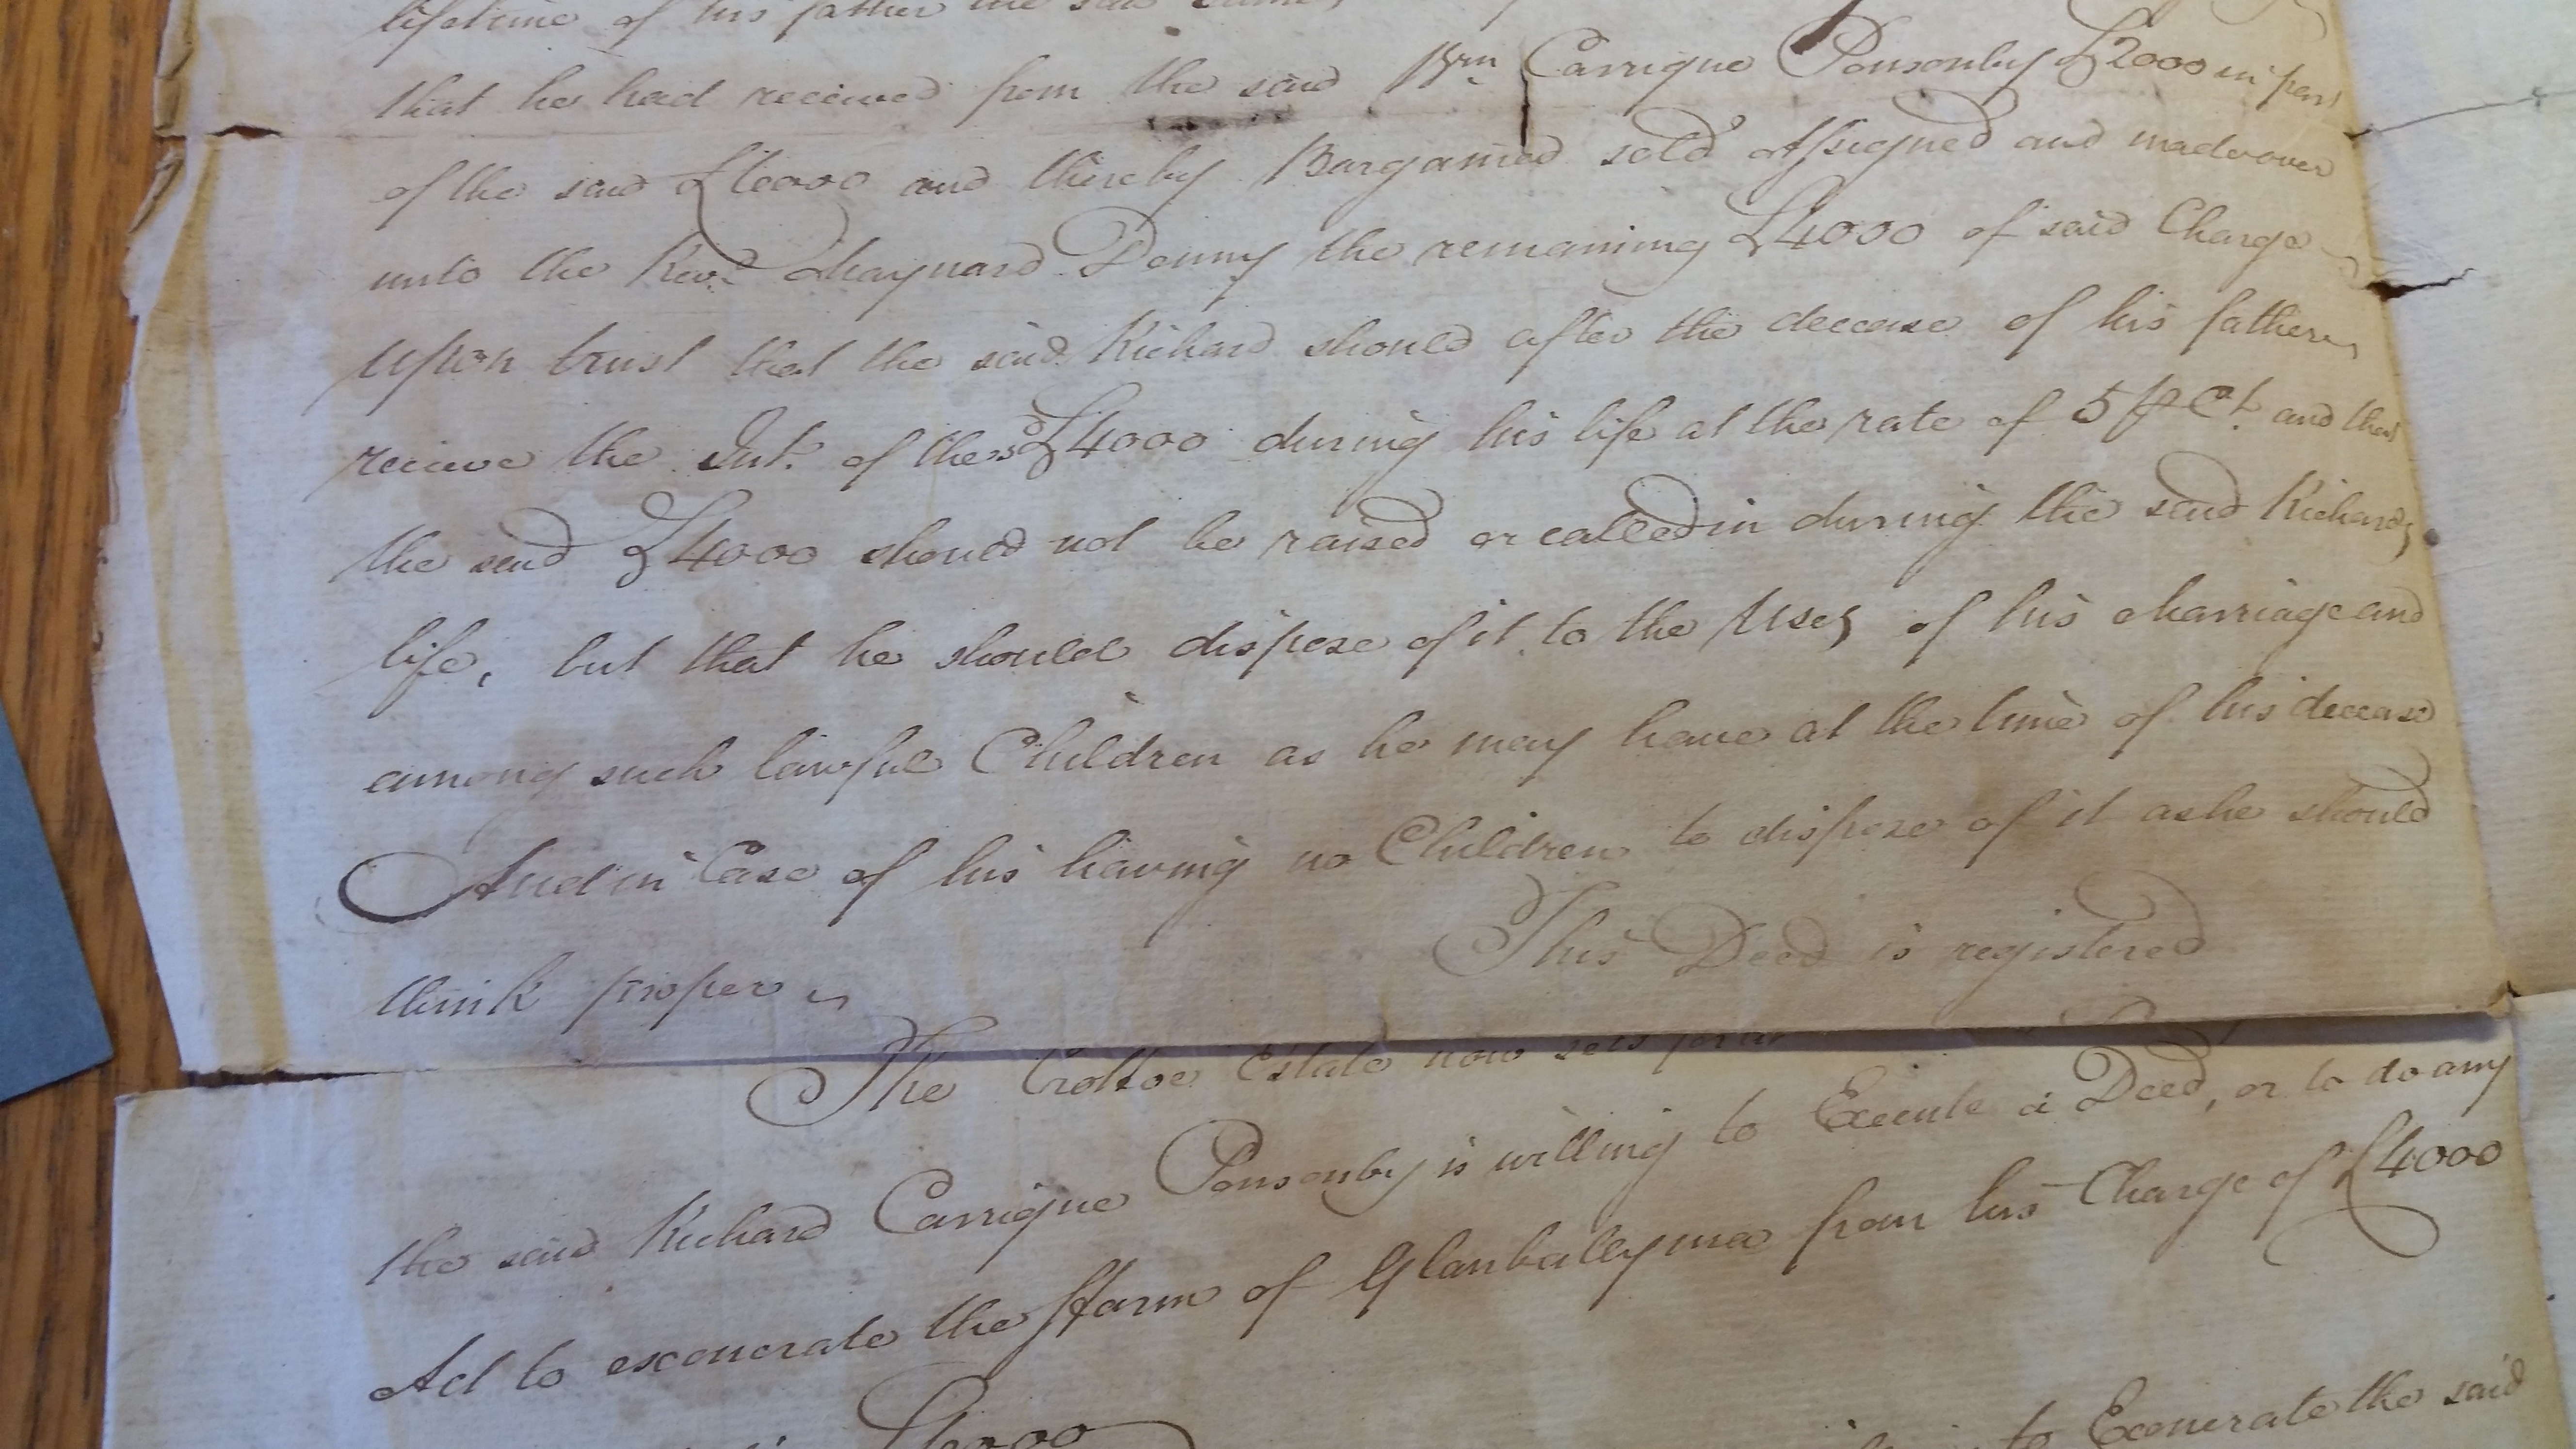 lifetime of his father the said
that he had received from the said Wm Carrique Ponsonby £2000 in part
of the said £6000 and thereby Bargained sold Assigned and made over
unto the Revd. Maynard Denny the remaining £4000 of said Charge
upon trust that the said Richard should after the decease of his father
receive the Int. of the sd £4000 during his life at the rate of 5 P Ct. and that
the said £4000 should not be raised or called in during the said Richards
life, but that he should dispose of it to the Uses of his Marriage and
among such lawful Children as he may have at the time of his decease
And in Case of his having no Children to dispose of it as he should
think proper
This Deed is registered
The Crottoe Estate now sets for
the said Richard Carrique Ponsonby is willing to Execute a Deed, or to do any
Act to exonerate the ffarm of Glanballyma from his Charge of £4000
to Exonerate the said